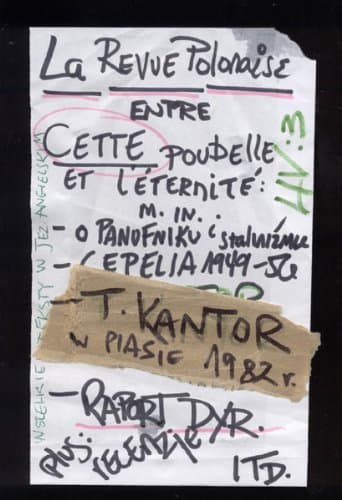 La REVUE Polonaise
ENTRE
CETTE POUBELLE
ET L'ÉTERNITÉ:
M. IN.:
- O PANUFNIKU i stalinizmie
- CEPELIA 1949-56
- T. KANTOR
W PIASIE 1982 r.
- RAPORT DYR.
plus: recenzje
ITD.
HV:3
TEKSTY W JĘZ ANGIELSKIM